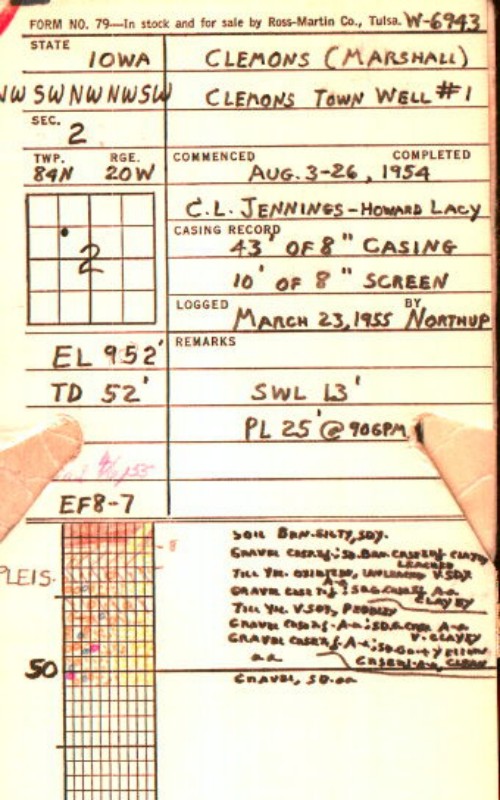 FORM NO. 79—In stock and for sale by Ross-Martin Co., Tulsa. W-6943
STATE
IOWA
CLEMONS (MARSHALL)
NW SW NW NW SW
CLEMONS TOWN WELL #1
SEC.
2
TWP. RGE.
84N 20W
COMMENCED COMPLETED
AUG. 3-26, 1954
C.L. JENNINGS-HOWARD LACY
CASING RECORD
43' OF 8" CASING
2
10' OF 8" SCREEN
LOGGED BY
MARCH 23, 1955 NORTHUP
EL 952'
REMARKS
TD 52'
SWL 13'
PL 25' @ 90GPM
EF8-7
SOIL BRN. SILTY, SDY.
PLEIS.
LEACHED
TILL YEL. OXIDIZED, UNLEACHED V.SDY
CLAYEY
TILL YEL. V.SDY, PEBBLY
V. CLAYEY
50
GRAVEL, SD. aa